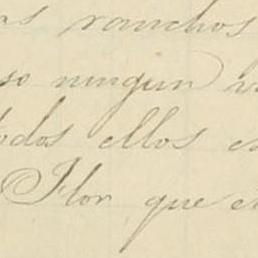 ranchos
so ningun
todos ellos
Flor que